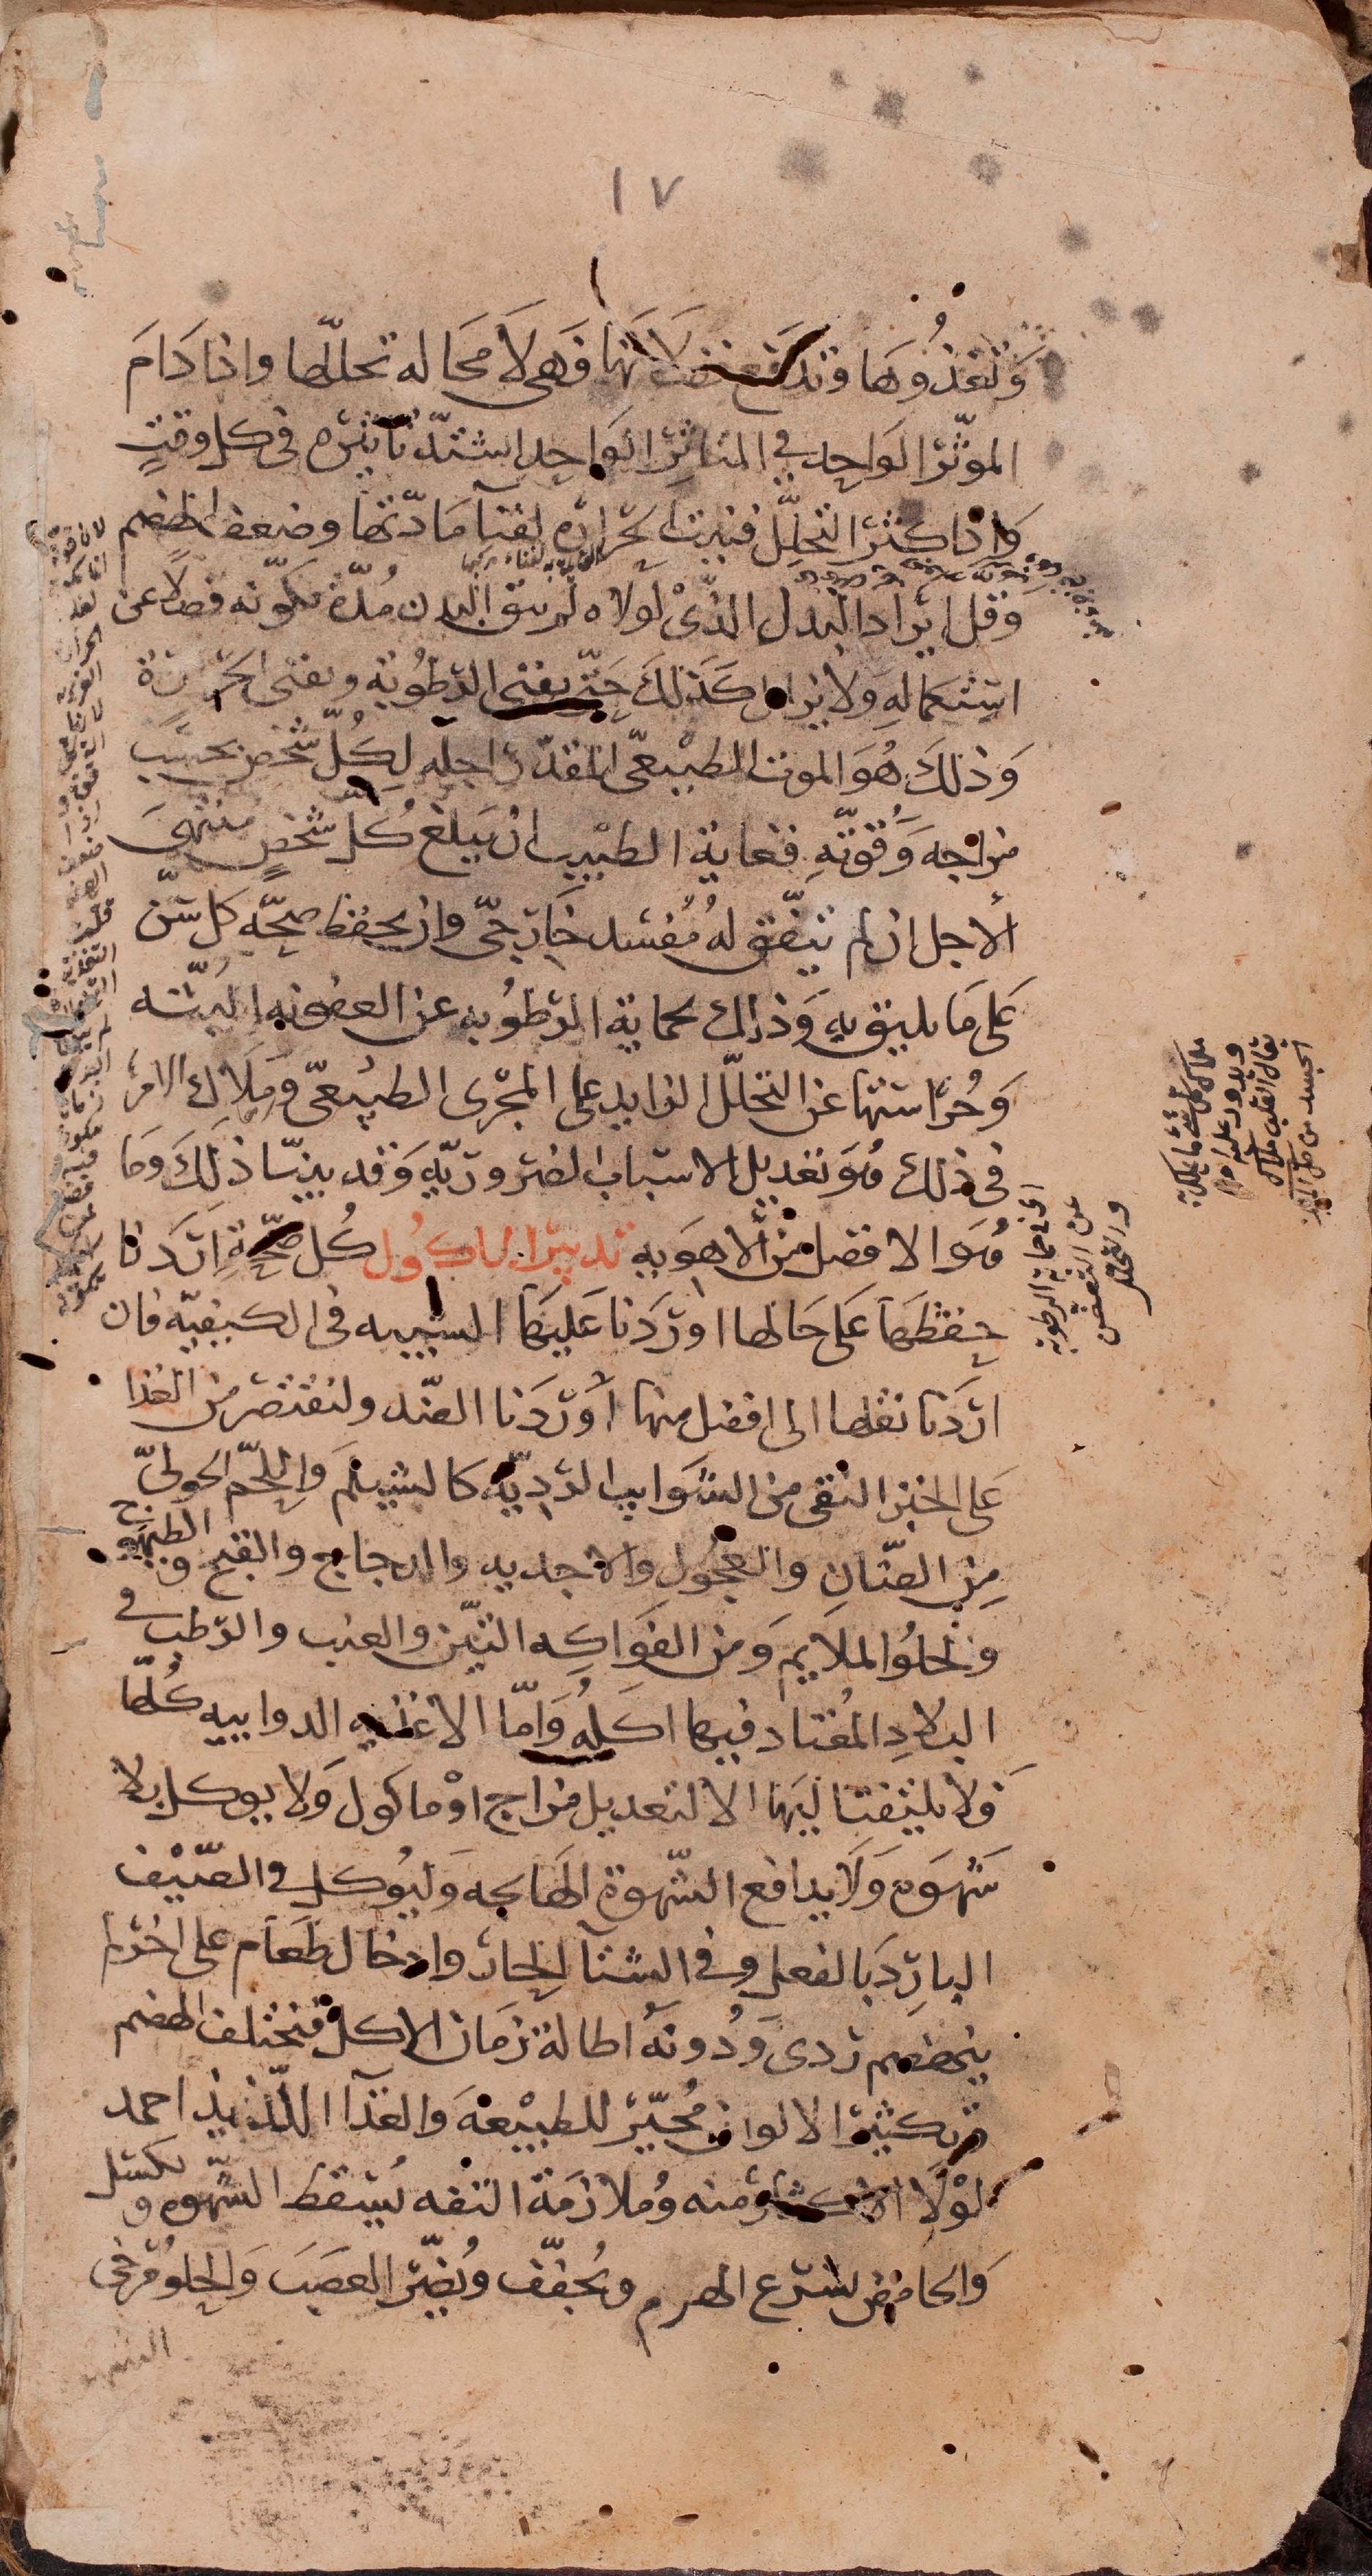 ١٧
وتغذوها وتدفع فضلاتها فهي لا محاله تحللها واذا دام
الموثر الواحد في المتاثر الواحد اشتد تاثيره في كل وقتٍ
واذا كثر التحلل فنيت الحراره لفنآ مادتها وضعف الهضم
وقل ايراد البدل الذي لولاه لم يبق البدن مدة تكونه فضلا عن
استكماله ولا يزال كذلك حتى يفنى الرطوبة ويفنى الحرارة
وذلك هو الموت الطبيعي المقدر اجله لكل شخص بحسب
مزاجه وقوته فغاية الطبيب ان يبلغ كل شخص منتهى
الاجل ان لم يتفق له مفسد خارجي وان يحفظ صحة كل سن
على ما يليق به وذلك بحماية الرطوبه عن العفونه البتة
وحراستها عن التحلل الزايد على المجرى الطبيعي وملاك الامر
في ذلك هو تعديل الاسباب الضروريه وقد بينا ذلك وما
هو الافضل من الاهويه تدبير الماكول كل صحة اردنا
حفظها على حالها اوردنا عليها الشبيه في الكيفيه فان
اردنا نقلها الى افضل منها اوردنا الضد ولنقتصر من الغذا
على الخبز النقي من الشوايب الرديه كالشيلم واللحم الحولي
من الضان والعجول والاجديه والدجاج والقبج والطيهوج
والحلو الملايم ومن الفواكه التين والعنب والرطب في
البلاد المعتاد فيها اكله واما الاغذيه الدواييه كلها
فلا يلتفت اليها الا لتعديل مزاج او ماكول ولا يوكل بلا
شهوة ولا يدافع الشهوة الهايجه وليوكل في الصيف
البارد بالفعل وفي الشتآ الحار وادخال طعام على اخر لم
ينهضم ردى ودونه اطالة زمان الاكل فيختلف الهضم
وتكثير الالوان محير للطبيعه والغذآ اللذيذ احمد
لولا الاكثار منه وملازمة التفه يسقط الشهوه ويكسل
والحامض يسرع الهرم ويجفف ويضر العصب والحلو يرخى
اى فى حماية الرطوبة
عن التعفن
والتحلل
ملاك كل شئ ما يملك به
ويدور عليه امره
يقال القلب ملاك
الجسد